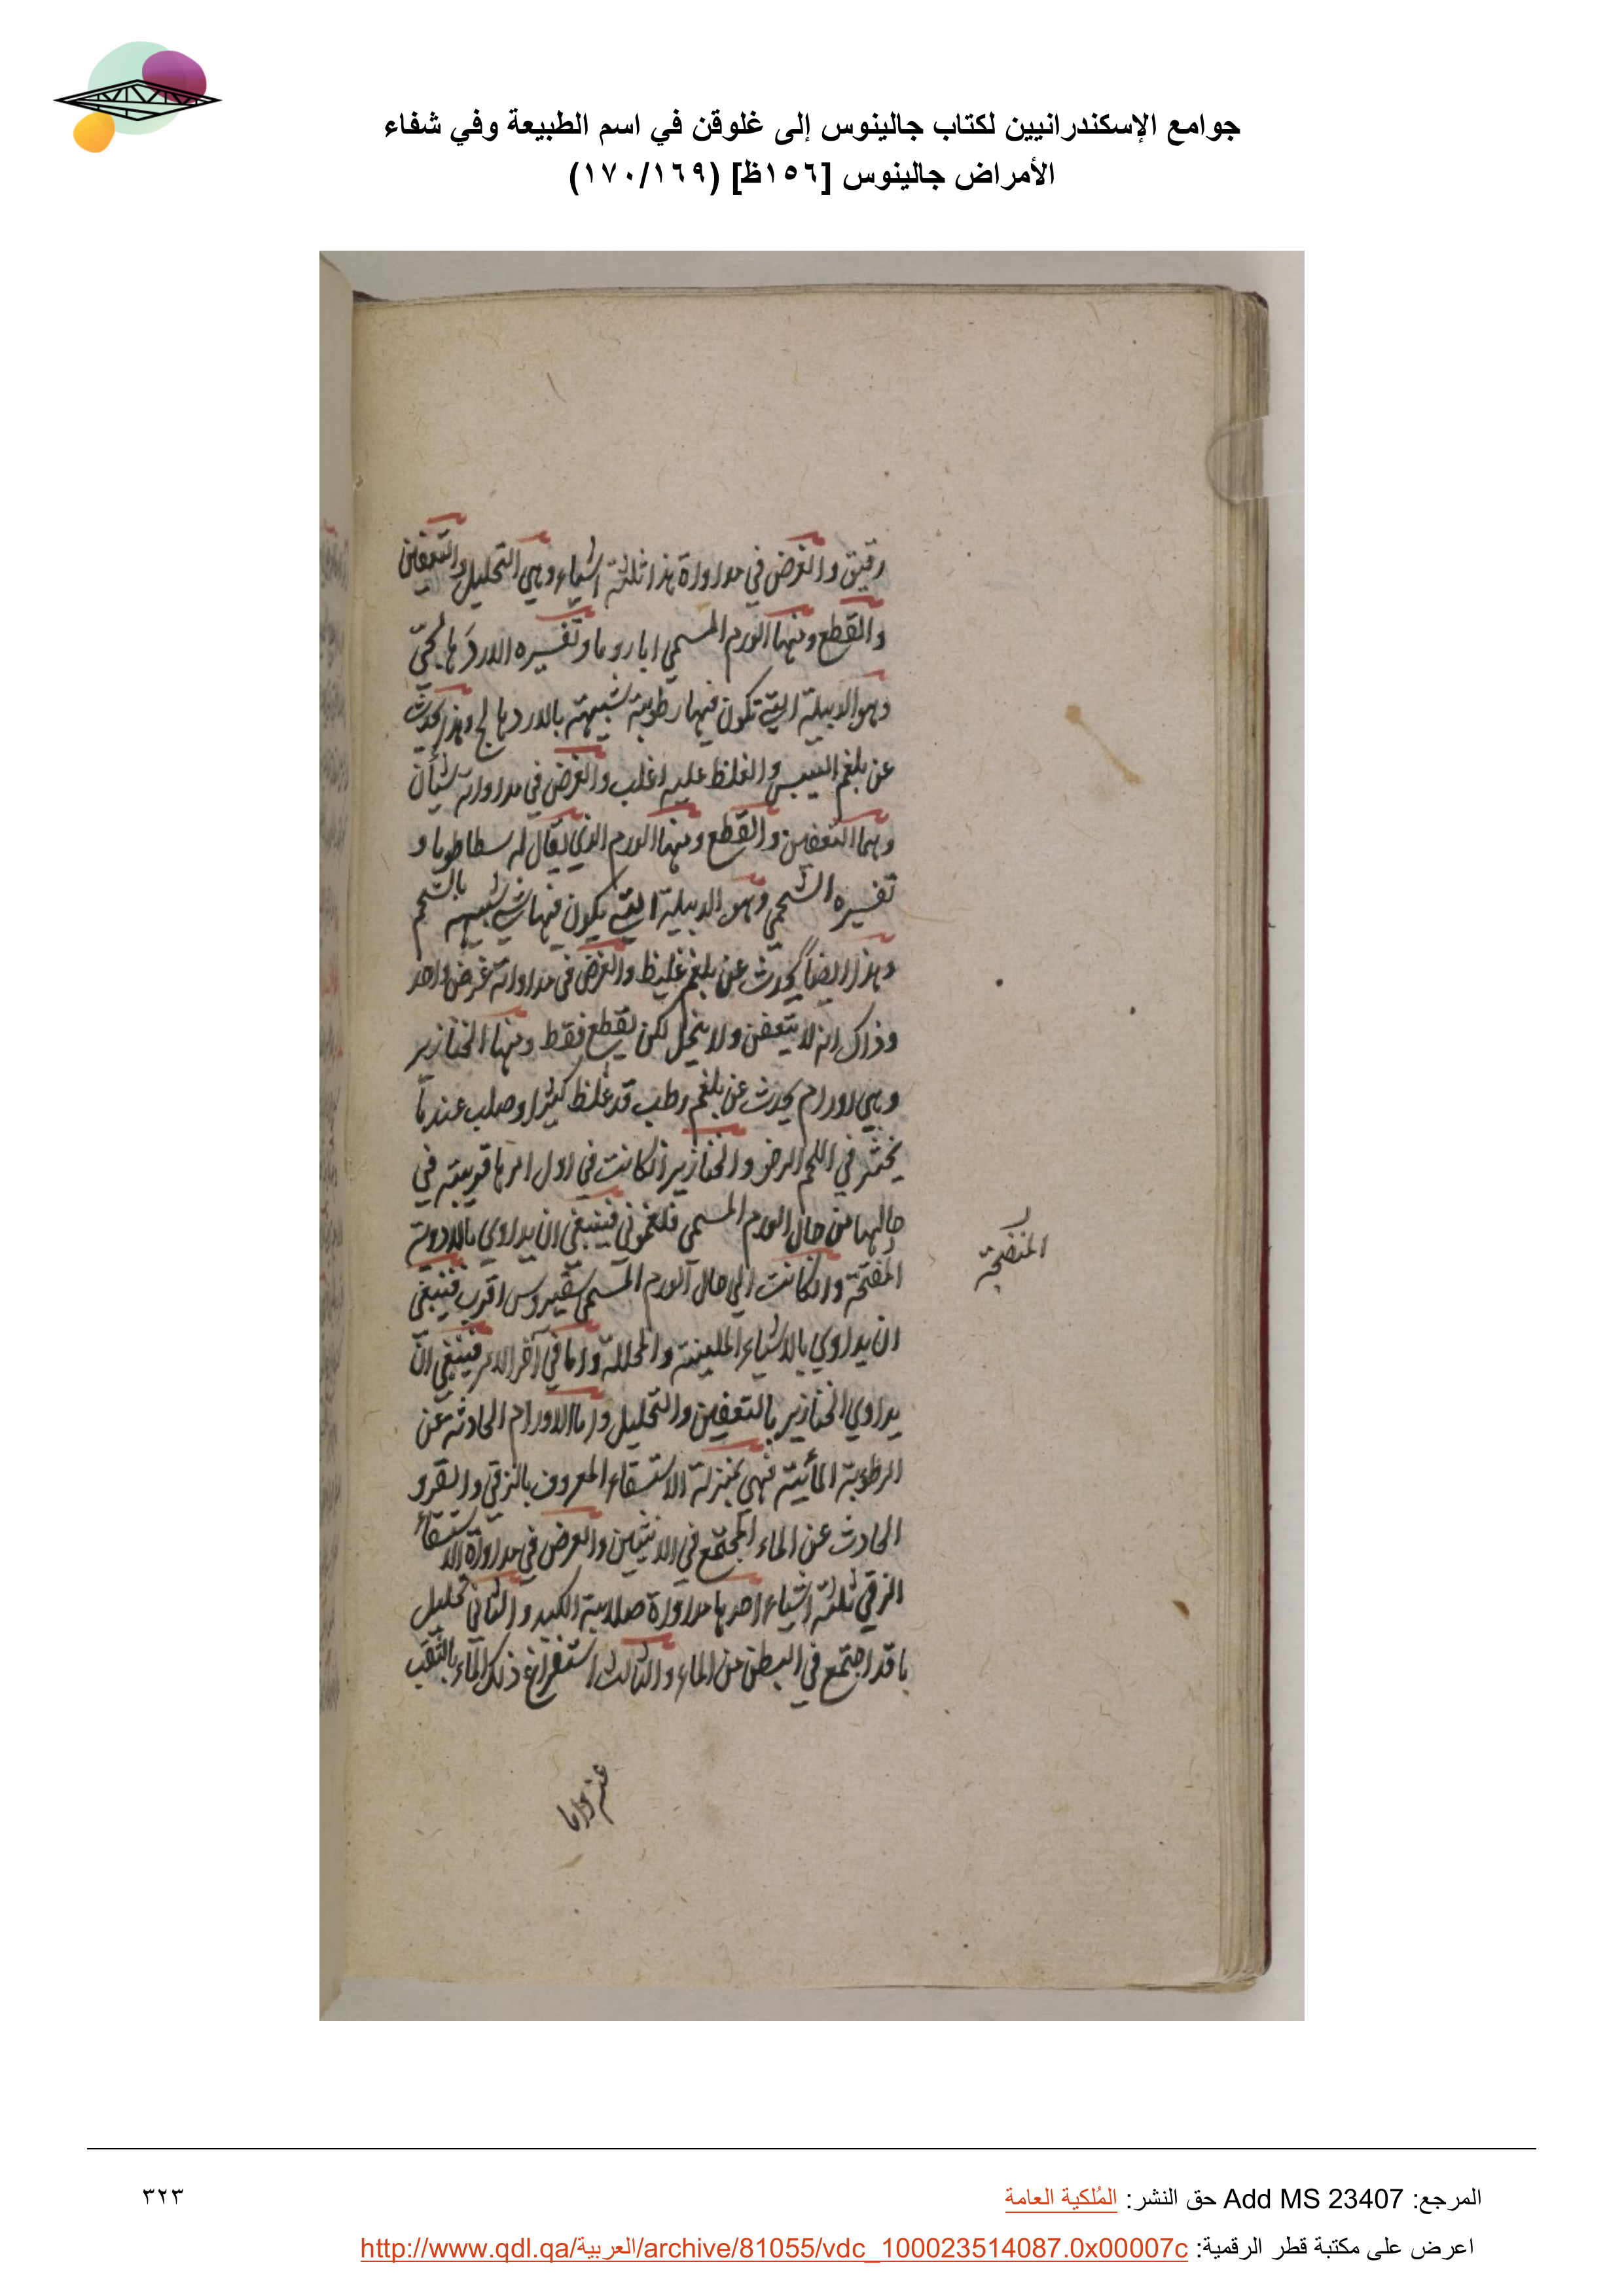 جوامع الإسكندرانيين لكتاب جالينوس إلى غلوقن في اسم الطبيعة وفي شفاء
الأمراض جالينوس [١٥٦ظ] (١٧٠/١٦٩)
رقيق والغرض في مداواة هذا ثلثة اشياء وهي التحليل والتعفين
والقطع ومنها الورم المسمى وتفسيره
وهو الدبيلة التي تكون فيها رطوبة شبيهة وهذا يحدث
عن بلغم اليبس والغلظ عليه اغلب والغرض في مداواته شيأن
وهما التعفين والقطع ومنها الورم الذي يقال له سطاطوما و
تفسيره الشحمي وهو الدبيلة التي يكون فيها شي شبيهه بالشحم
وهذا ايضاً يحدث عن بلغم غليظ والغرض في مداواته غرض واحد
وذاك انه لا يتعفن ولا ينحل لكن يقطع فقط ومنها الخنازير
وهي اورام يحدث عن بلغم رطب قد غلظ كثيرا وصلب عندما
يخثر في اللحم الرخو والخنازير انكانت في اول امرها قريبة في
حالها من حال الورم المسمى فلغموني فينبغي ان يداوي بالادوية
المفتحة وانكانت الي حال الورم المسمى سقيروس اقرب فينبغي
المنضجة
ان يداوي بالاشياء الملينة والمحللة واما في آخر الامر فينبغي ان
يداوي الخنازير بالتعفين والتحليل واما الاورام الحادثة عن
الرطوبة المائية فهي بمنزلة الاستسقاء المعروف بالزقي والقرو
الحادث عن الماء المجتمع في الانثيين والغرض في مداواة الاستسقاء
الزقي ثلثة اشياء احدها مداواة صلابة الكبد والثاني تحليل
ما قد اجتمع في البطن من الماء والثالث استفراغ ذلك الماء بالثقب
عنه واما
المرجع: Add MS 23407 حق النشر: المُلكية العامة
٣٢٣
اعرض على مكتبة قطر الرقمية: http://www.qdl.qa/العربية/archive/81055/vdc_100023514087.0x00007c